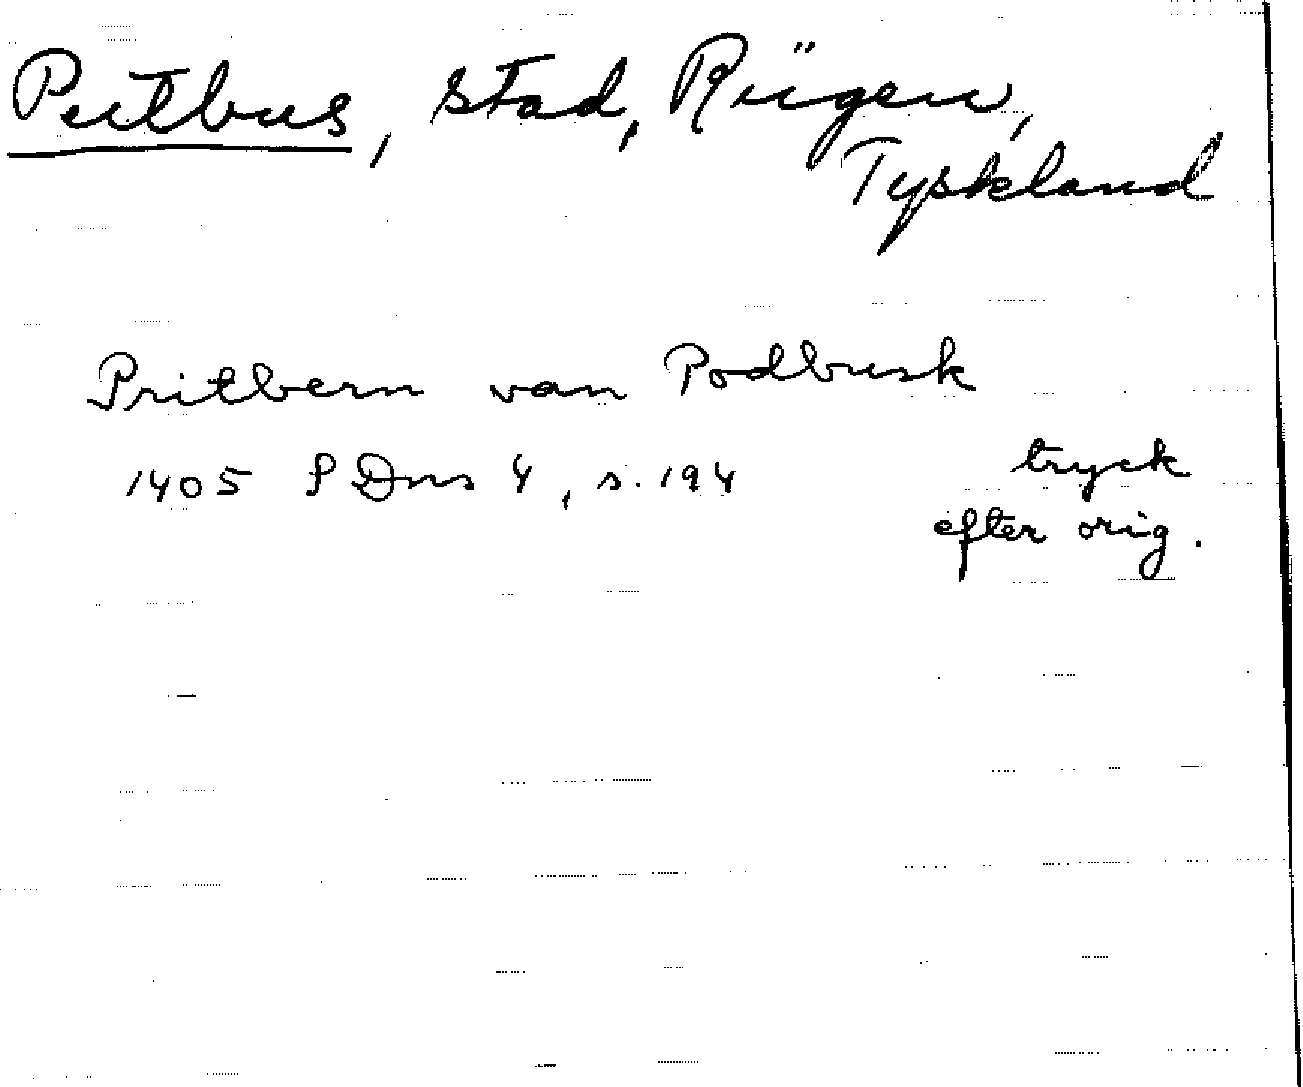 Putbus, stad, Rügen,
Tyskland
Pritbern van Podbusk
1405 SDns 4, s. 194 tryck
efter orig.